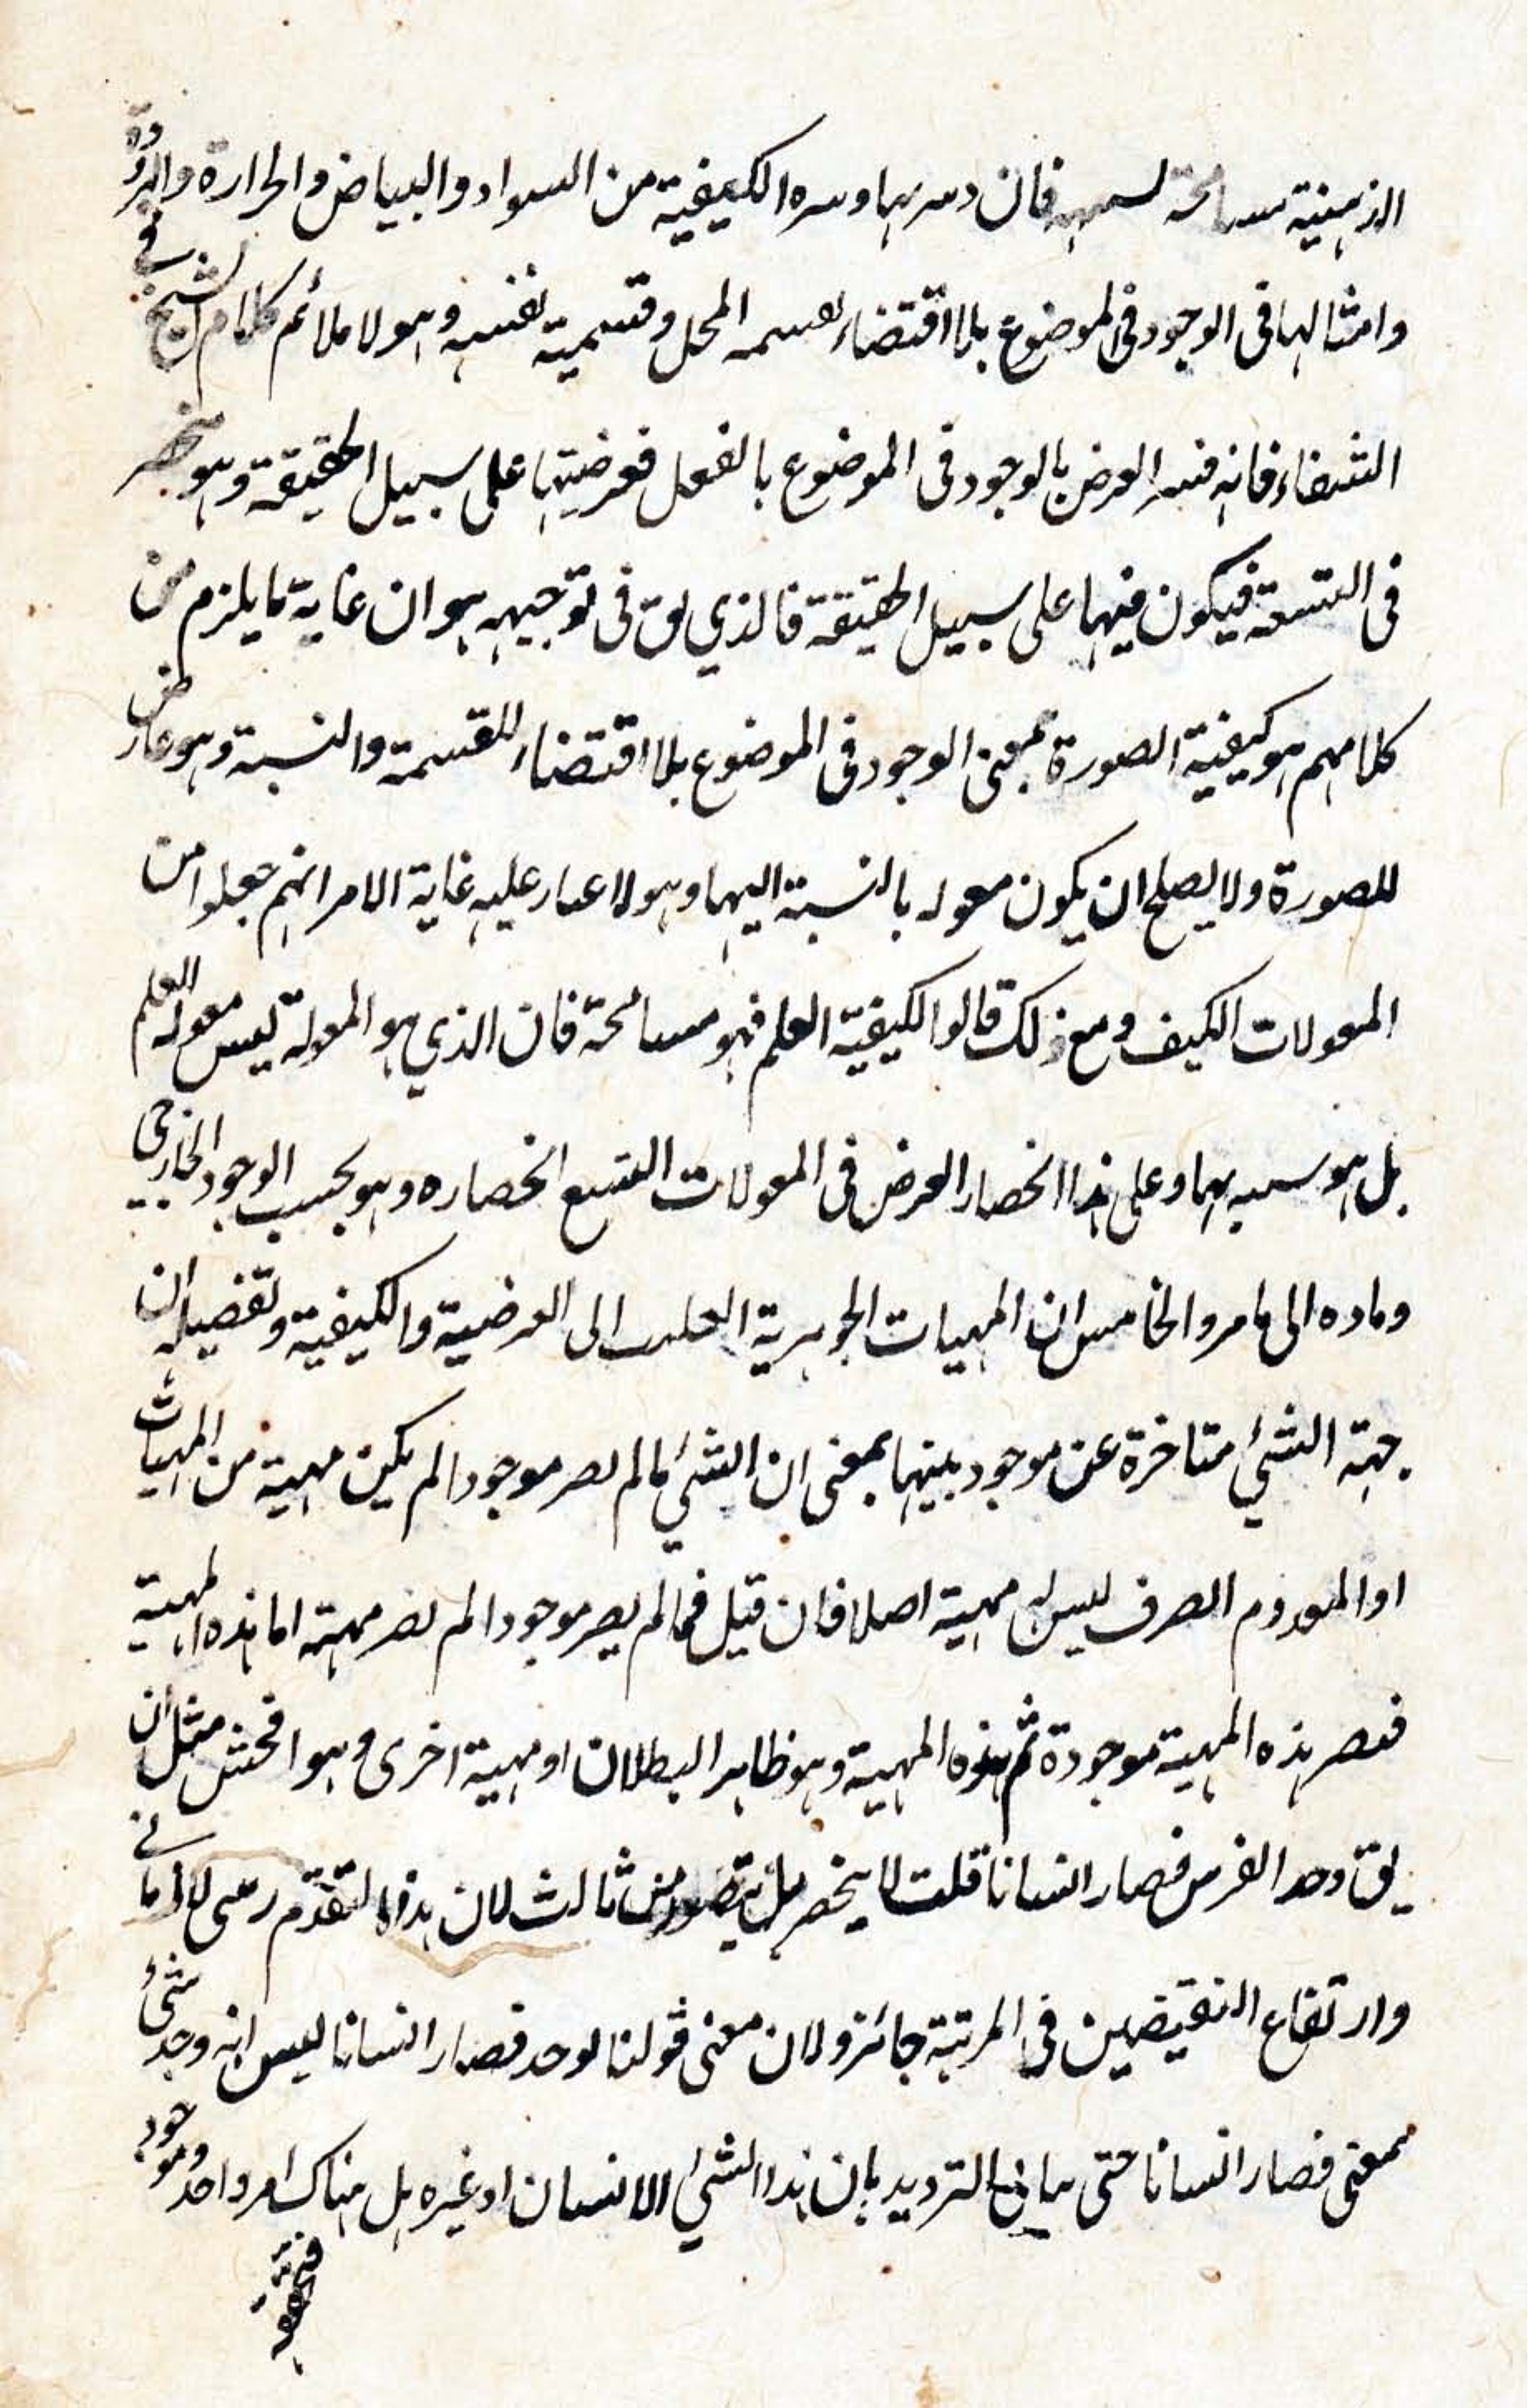 الذهنية مسامحة فان الكيفية من السواد والبياض والحرارة والبرودة
وامثالها في الوجود في الموضوع بلا اقتضاء لقسمة المحل وقسمية نفسه وهو لا ملائم كلام الشيخ في
الشفاء فانه فسر العرض بالوجود في الموضوع بالفعل فعرضيتها على سبيل الحقيقة وهو منحصر
في التسعة فيكون فيها على سبيل الحقيقة فالذي يق في توجيهه هو ان غاية ما يلزم من
كلامهم هو كيفية الصورة بمعنى الوجود في الموضوع بلا اقتضاء للقسمة والنسبة وهو عارض
للصورة ولا يصلح ان يكون معوله بالنسبة اليها وهو لا اعبار عليه غاية الامر انهم جعلوا من
المعولات الكيف ومع ذلك قالوا لكيفية العلم فهو مسامحة فان الذي هو المعولة ليس معولة العلم
بل هو وعلى هذا انحصار العرض في المعولات التسع انحصاره وهو بحسب الوجود الخارجي
وماده الى ما مر والخامس ان المهيات الجوهرية الى العرضية والكيفية وتفصيله ان
جهة الشئ متاخرة عن موجود بينها بمعنى ان الشئ ما لم يصر موجودا لم يكن مهية من المهيات
او المعدوم الصرف ليس له مهية اصلا فان قيل فما لم يصر موجودا لم يصر مهية اما هذه المهية
فيصر هذه المهية موجودة ثم هذه المهية وهو ظاهر البطلان او مهية اخرى وهو افحش مثل ان
يق وجد الفرس فصار انسانا قلت لا ينحصر بل يتصور من ثالث لان هذا التقدم
وارتفاع النقيضين في المرتبة جائز ولان معنى قولنا لوجد فصار انسانا ليس انه وجد شئ
بمعنى فصار انسانا حتى الترديد بان هذا الشئ الانسان او غيره بل هناك امر واحد وموجود